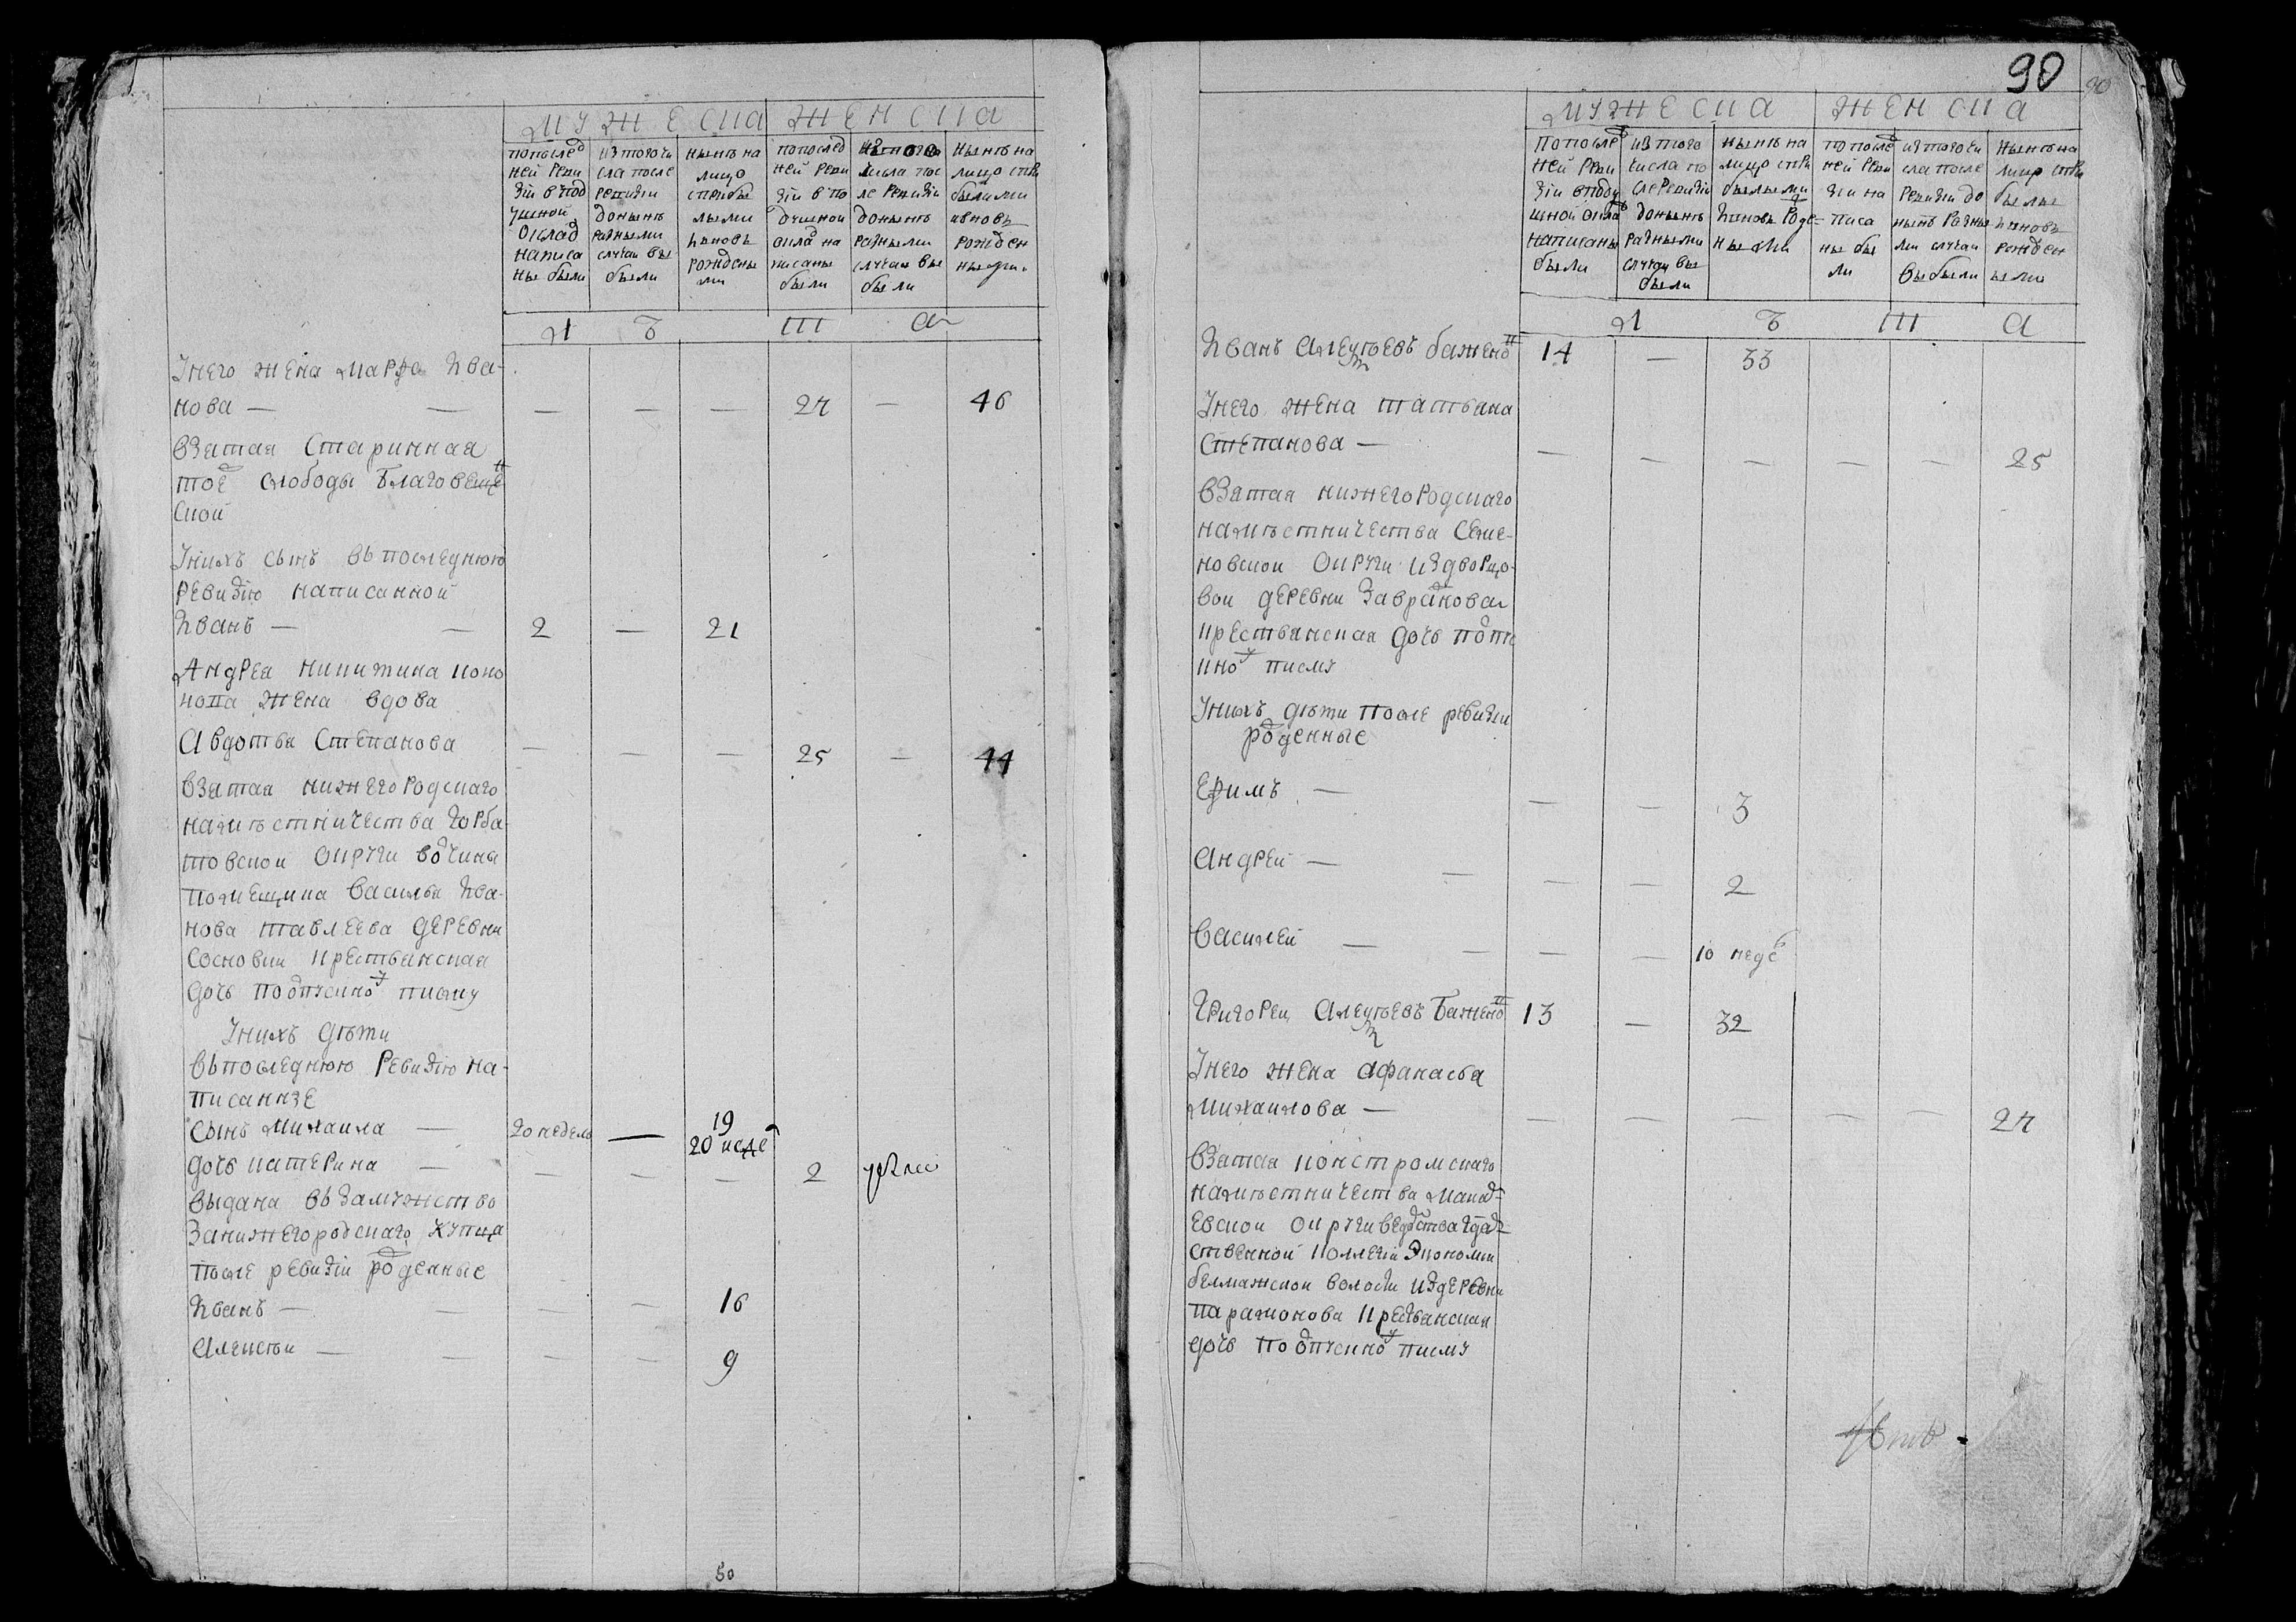 МУЖЕСКА ЖЕНСКА
по послед
ней реви
зіи в под
ушной
оклад
написа
ны были
из того чи
сла после
ревизіи
до нынѣ
разными
случаи вы
были
нынѣ на
лицо
с прибы
лыми
и вновь
рождены
ми
по послед
ней реви
зіи в по
душной
оклад на
писаны
были
из того
числа пос
ле ревизіи
до нынѣ
разными
случаи вы
были
нынѣ на
лицо с при
былыми
и вновь
рожден
ными
Л Ѣ Т А
У него жена Марфа Ива-
нова — — — — — 27 — 46
взятая старинная
той слободы Благовещен
ской
У нихъ сынъ въ последнюю
ревизію написанной
Иванъ — — 2 — 21
Андрея Никитина Коно
нова жена вдова
Авдотья Степанова — — — 25 — 44
взятая Нижегородскаго
намѣстничества Горба-
товской округи вотчины
помещика Василья Ива-
нова Тавлеева деревни
Сосновки крестьянская
дочь по отпускному писму
У нихъ дѣти
въ последнюю ревизію на-
писанные
сынъ Михаила — 20 недель — 19
20 недель
дочь Катерина — — — — 2
выдана въ замужство
за нижегородскаго купца
после ревизіи рожденные
Иванъ — — — — 16
Алексѣй — — — — 9
50
90
90
МУЖЕСКА ЖЕНСКА
по послед
ней реви
зіи в поду
шной оклад
написаны
были
из того
числа по
сле ревизіи
до нынѣ
разными
случаи вы
были
нынѣ на
лицо с при
былыми
и вновь рожде-
ными
по после
ней реви
зіи на
писа
ны бы
ли
из того чи
сла после
ревизіи до
нынѣ разны
ми случаи
выбыли
нынѣ на
лицо с при
былы
и вновь
рожден
ыми
Л Ѣ Т А
Иванъ Алексѣевъ Баженин 14 — 33
У него жена Татьяна
Степанова — — — — — — 25
взятая Нижегородскаго
намѣстничества Семе-
новской округи из дворцо-
вой деревни
крестьянская дочь по отпу
кному писму
У нихъ дѣти после ревизіи
рожденные
Ефимъ — — — 3
Андрей — — — — 2
Василей — — — — 10 недель
Григорей Алексѣевъ Баженин 13 — 32
У него жена Афанасья
Михайлова — — — — — — 27
взятая Костромскаго
намѣстничества Макарь-
евской округи ведомства Государ-
ственной Коллегіи Экономіи
Белмажской волости из деревни
Парамонова крестьянская
дочь по отпускному писму